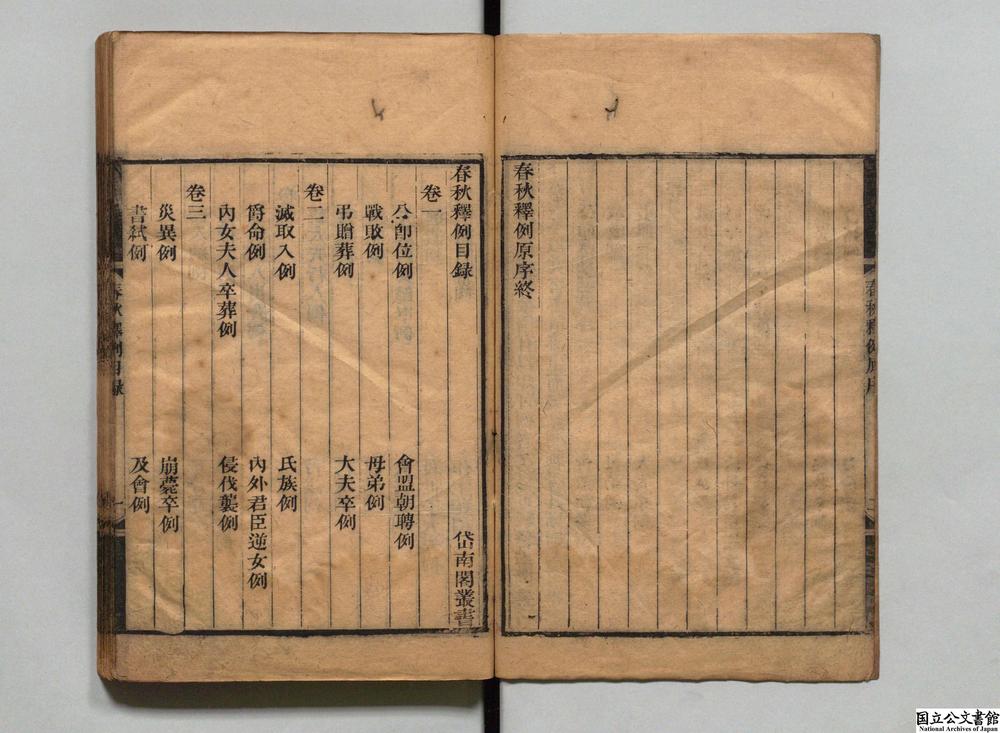 春秋釋例原序終
春秋釋例目録
岱南閣叢書
卷一
公即位例 會盟朝聘例
戰敗例 母弟例
弔贈葬例 大夫卒例
卷二
滅取入例 氏族例
爵命例 內外君臣逆女例
內女夫人卒葬例 侵伐襲例
卷三
災異例 崩薨卒例
書弑例 及會例
春秋釋例目録
一
国立公文書館
National Archives of Japan